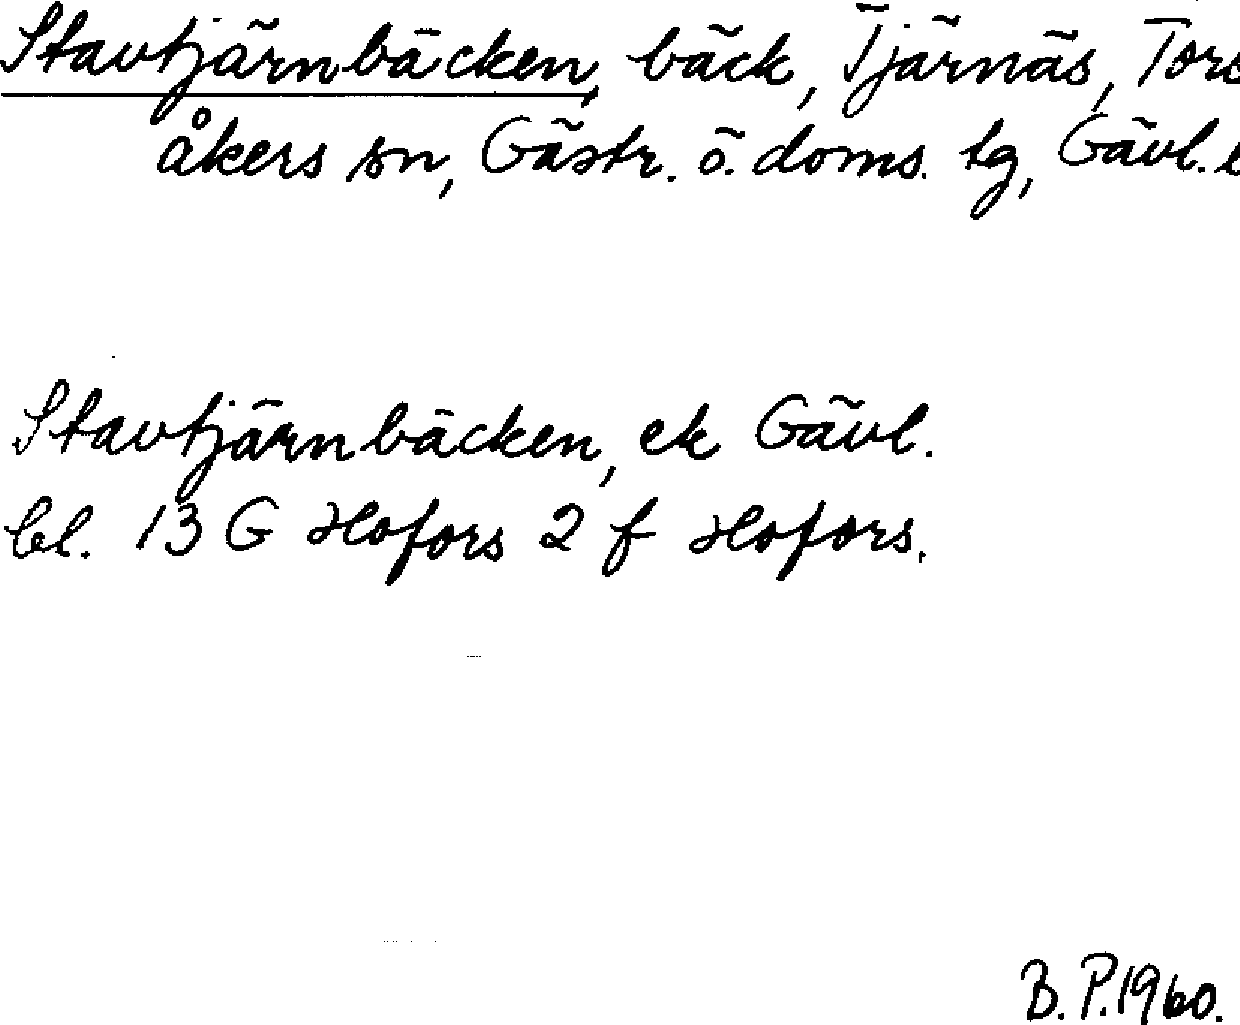 Stavtjärnbäcken, bäck, Tjärnäs, Tors
åkers sn, Gästr. ö. doms. tg, Gävl.
Stavtjärnbäcken, ek Gävl.
bl. 13 G Hofors 2 f Hofors.
B. P. 1960.